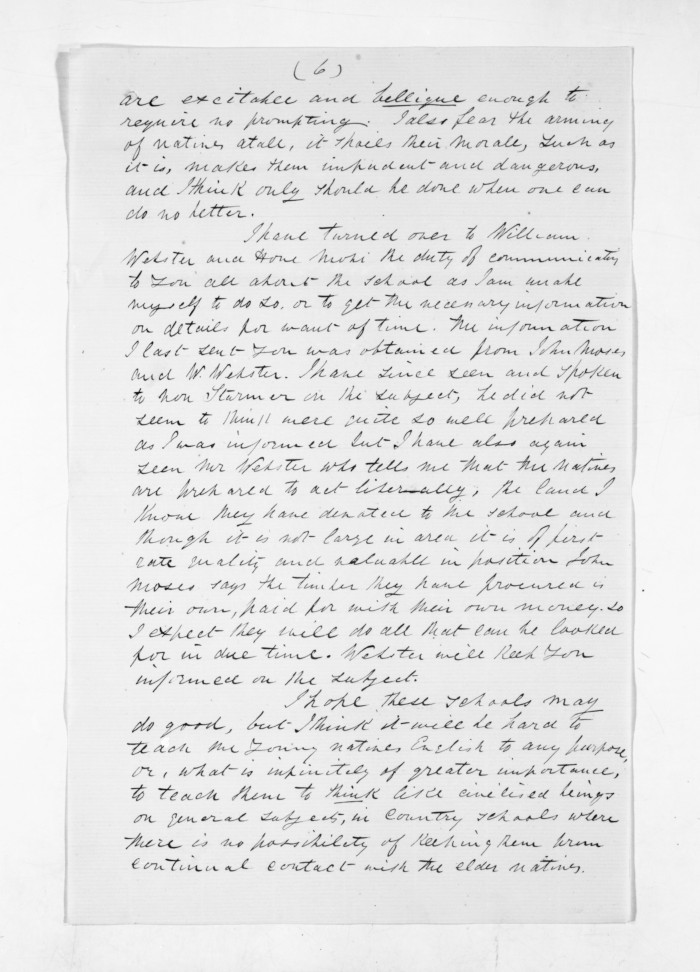 (6)
are excitable and bellique enough to
require no prompting. I also fear the arming
of natives atall, it spoils their morale, such as
it is, makes them impudent and dangerous,
and I think only should be done when one can
do no better.
I have turned over to William
Webster and Hone Mosi the duty of communicating
to you all about the school as I am unable
myself to do so, or to get the necessary information
on details for want of time. The information
I last sent you was obtained from John Moses
and W. Webster. I have since seen and spoken
to von Sturmer on the subject, he did not
seem to think were quite so well prepared
as I was informed but I have also again
seen Mr Webster who tells me that the natives
are prepared to act liberally, the land I
know they have donated to the school and
though it is not large in area it is of first
rate quality and valuable in position John
Moses says the timber they have procured is
their own, paid for with their own money. so
I expect they will do all that can be looked
for in due time. Webster will keep you
informed on the subject.
I hope these schools may
do good, but I think it will be hard to
teach the young natives English to any purpose,
or, what is infinitely of greater importance,
to teach them to think like civilised beings
on general subjects, in country schools where
there is no possibility of keeping them from
continual contact with the elder natives.